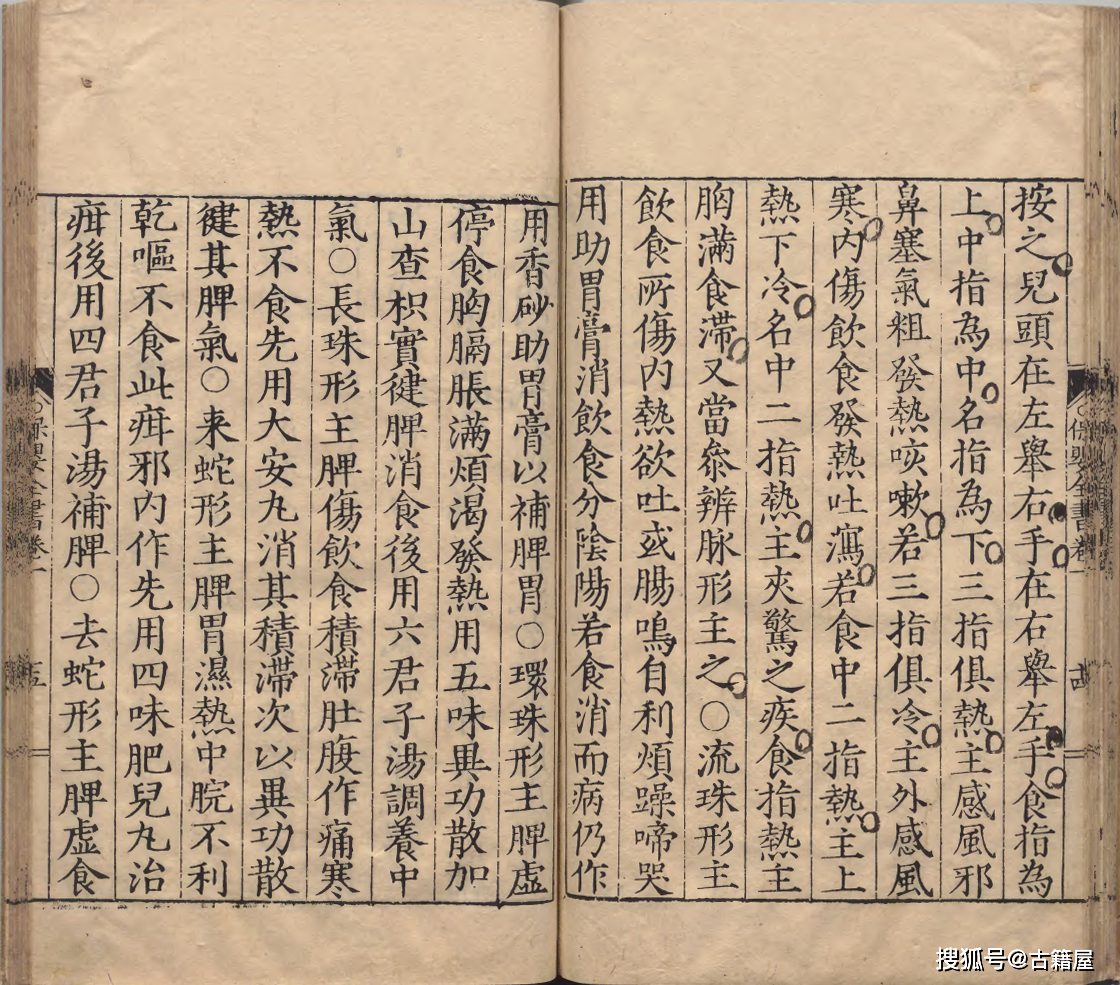 按之兒頭在左舉右手在右舉左手食指為
上中指為中名指為下三指俱熱主感風邪
鼻塞氣粗發熱咳嗽若三指俱冷主外感風
寒內傷飲食發熱吐瀉若食中二指熱主上
熱下冷名中二指熱主夾驚之疾食指熱主
胸滿食滯又當叅辨脉形主之〇流珠形主
飲食所傷內熱欲吐或腸鳴自利煩躁啼哭
用助胃膏消飲食分陰陽若食消而病仍作
用香砂助胃膏以補脾胃〇環珠形主脾虛
停食胸膈脹滿煩渴發熱用五味異功散加
山查枳實徤脾消食後用六君子湯調養中
氣〇長珠形主脾傷飲食積滯肚腹作痛寒
熱不食先用大安丸消其積滯次以異功散
徤其脾氣〇来蛇形主脾胃濕熱中脘不利
乾嘔不食此疳邪內作先用四味肥兒丸治
疳後用四君子湯補脾〇去蛇形主脾虛食
保嬰全書卷一
十四
保嬰全書卷一
十五
搜狐号@古籍屋